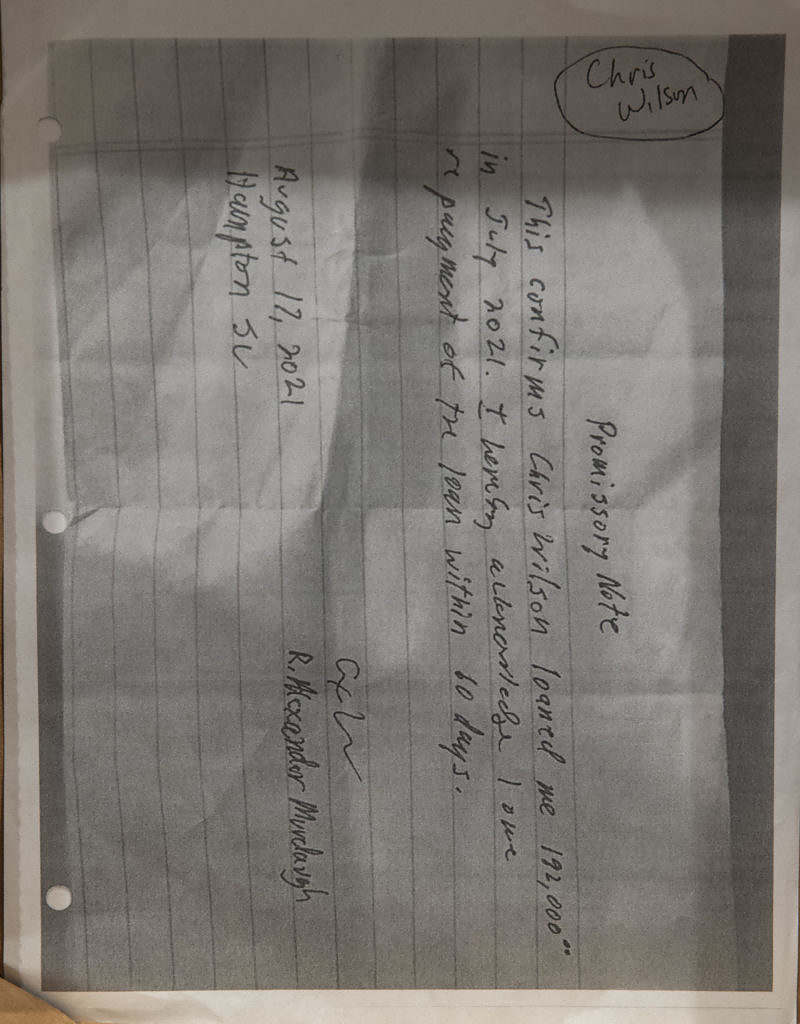 Chris
Wilson
Promissory Note
This confirms Chris Wilson loaned me 192,000⁰⁰
in July 2021. I hereby acknowledge I owe
repayment of the loan within 60 days.
R. Alexander Murdaugh
August 17, 2021
Hampton SC